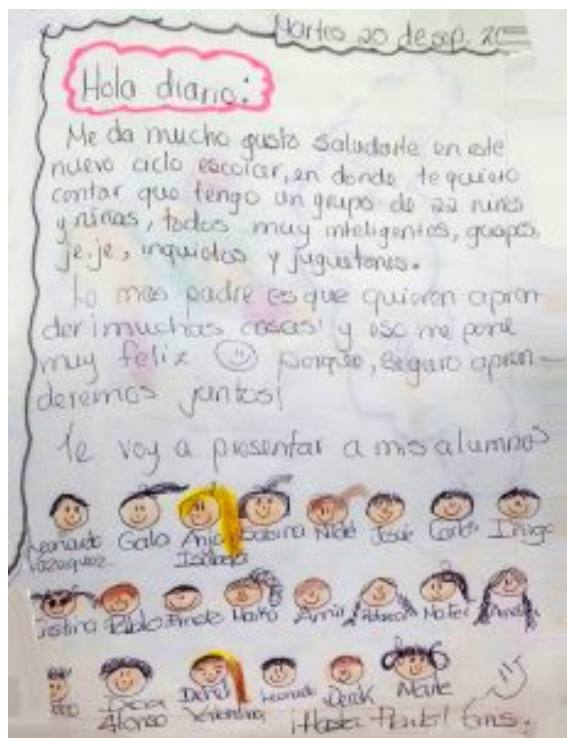 Martes 20 de sep. 20
Hola diario:
Me da mucho gusto saludarte en este
nuevo ciclo escolar, en donde te quiero
contar que tengo un grupo de 22 niños
y niñas, todos muy inteligentes, guapos,
je.je, inquietos y juguetones.
Lo mas padre es que quieren apren-
der ¡muchas cosas! y eso me pone
muy feliz porque, seguro apren-
deremos juntos!
Te voy a presentar a mis alumnos
Leonardo Galo Anja Sabina Josue Carlos Iñigo
Vazquez
Pablo Amir Mateo
Alonso Valentina Leonardo Derek
¡Hasta Pronto!